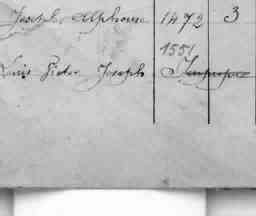 Joseph Alphonse 1472 3
1551
Louis Victor Joseph